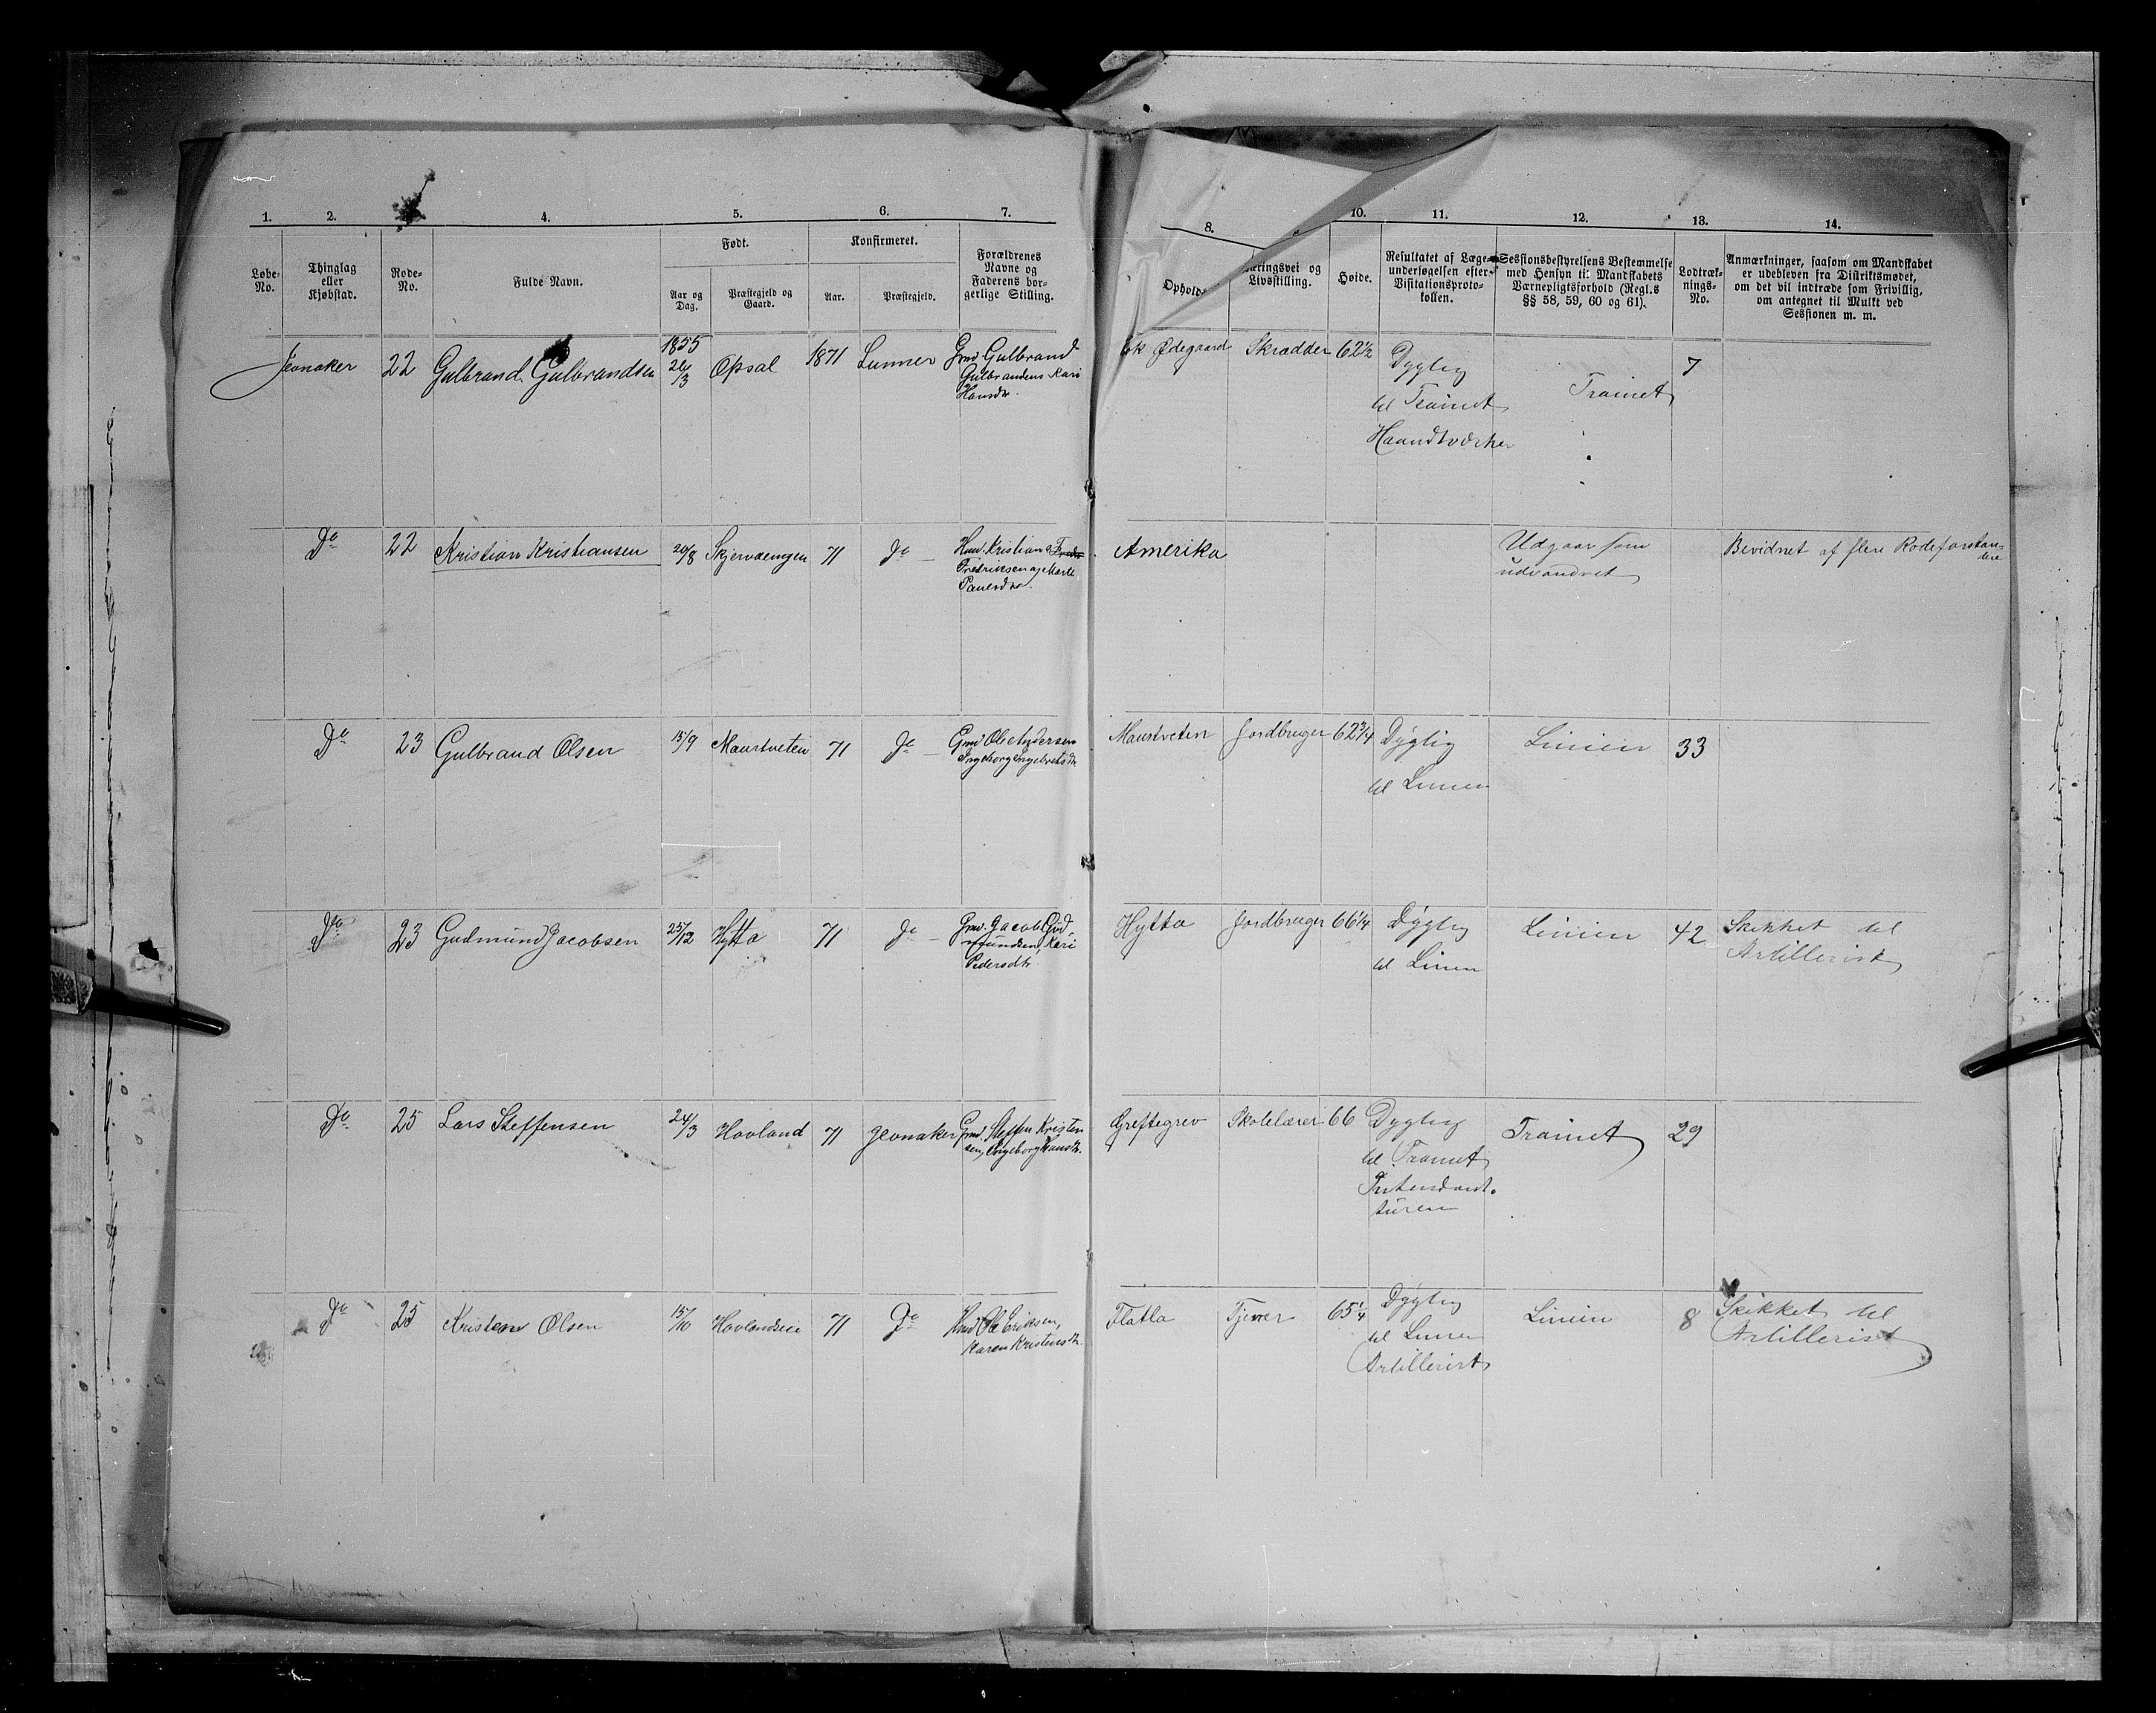 1. 2. 4. 5. 6. 7.
8. 10. 11. 12. 13. 14.
Løbe-No. Thinglag eller Kjøbstad. Rode-No. Fulde Navn. Født. Aar og Dag. Præstegjeld og Gaard. Konfirmeret. Aar. Præstegjeld. Forældrenes Navne og Faderens borgerlige Stilling.
Ophold æringsvei og Livsstilling. Høide. Resultatet af Lægeundersøgelsen efter Visitationsprotokollen. Sessionsbestyrelsens Bestemmelse med Hensyn til Mandskabets Værnepligtsforhold (Regl.s §§ 58, 59, 60 og 61). Lodtræknings-No. Anmærkninger, saasom om Mandskabet er udebleven fra Distriktsmødet, om det vil indtræde som Frivillig, om antegnet til Mulkt ved Sessionen m. m.
Jevnaker 22 Gulbrand Gulbrandsen 1855 26/3 Opsal 1871 Lunner Gmd Gulbrand
Gulbrandsens Kari
Hansdtr.
Ødegaard Skrædder 62 1/2 Dygtig Trainet 7
til Trainet
Haandtværker
Do 22 Kristian Kristiansen 20/8 Skjervaengen 71 Do — Hmd. Kristian
Fredriksen og Marte
Paulsdtr.
Amerika Udgaar som Bevidnet af flere Rodeforstan=
udvandret dere
Do 23 Gulbrand Olsen 15/9 Maurtveten 71 Do — Gmd Ole Andersen
Ingeborg Ingebretsdtr
Maurtveten Jordbruger 62 3/4 Dygtig Linien 33
til Linien
Do 23 Gudmund Jacobsen 25/12 Hytta 71 Do — Gmd. Jacob Gud
mundsen, Kari
Pedersdtr.
Hytta Jordbruger 66 1/4 Dygtig Linien 42 Skikket til
til Linien Artillerist
Do 25 Lars Steffensen 24/3 Hovland 71 Jevnaker Gmd. Steffen Kristen
sen, Ingeborg Hansdtr.
Grøftegrev Skolelærer 66 Dygtig Trainet 29
til Trainet
Intendant-
turen
Do 25 Kristen Olsen 15/10 Hovlandseie 71 Do Hmd Ole Eriksen,
Karen Kristensdtr.
Flatla Tjener 65 1/4 Dygtig Linien 8 Skikket til
til Linien Artillerist
Artillerist